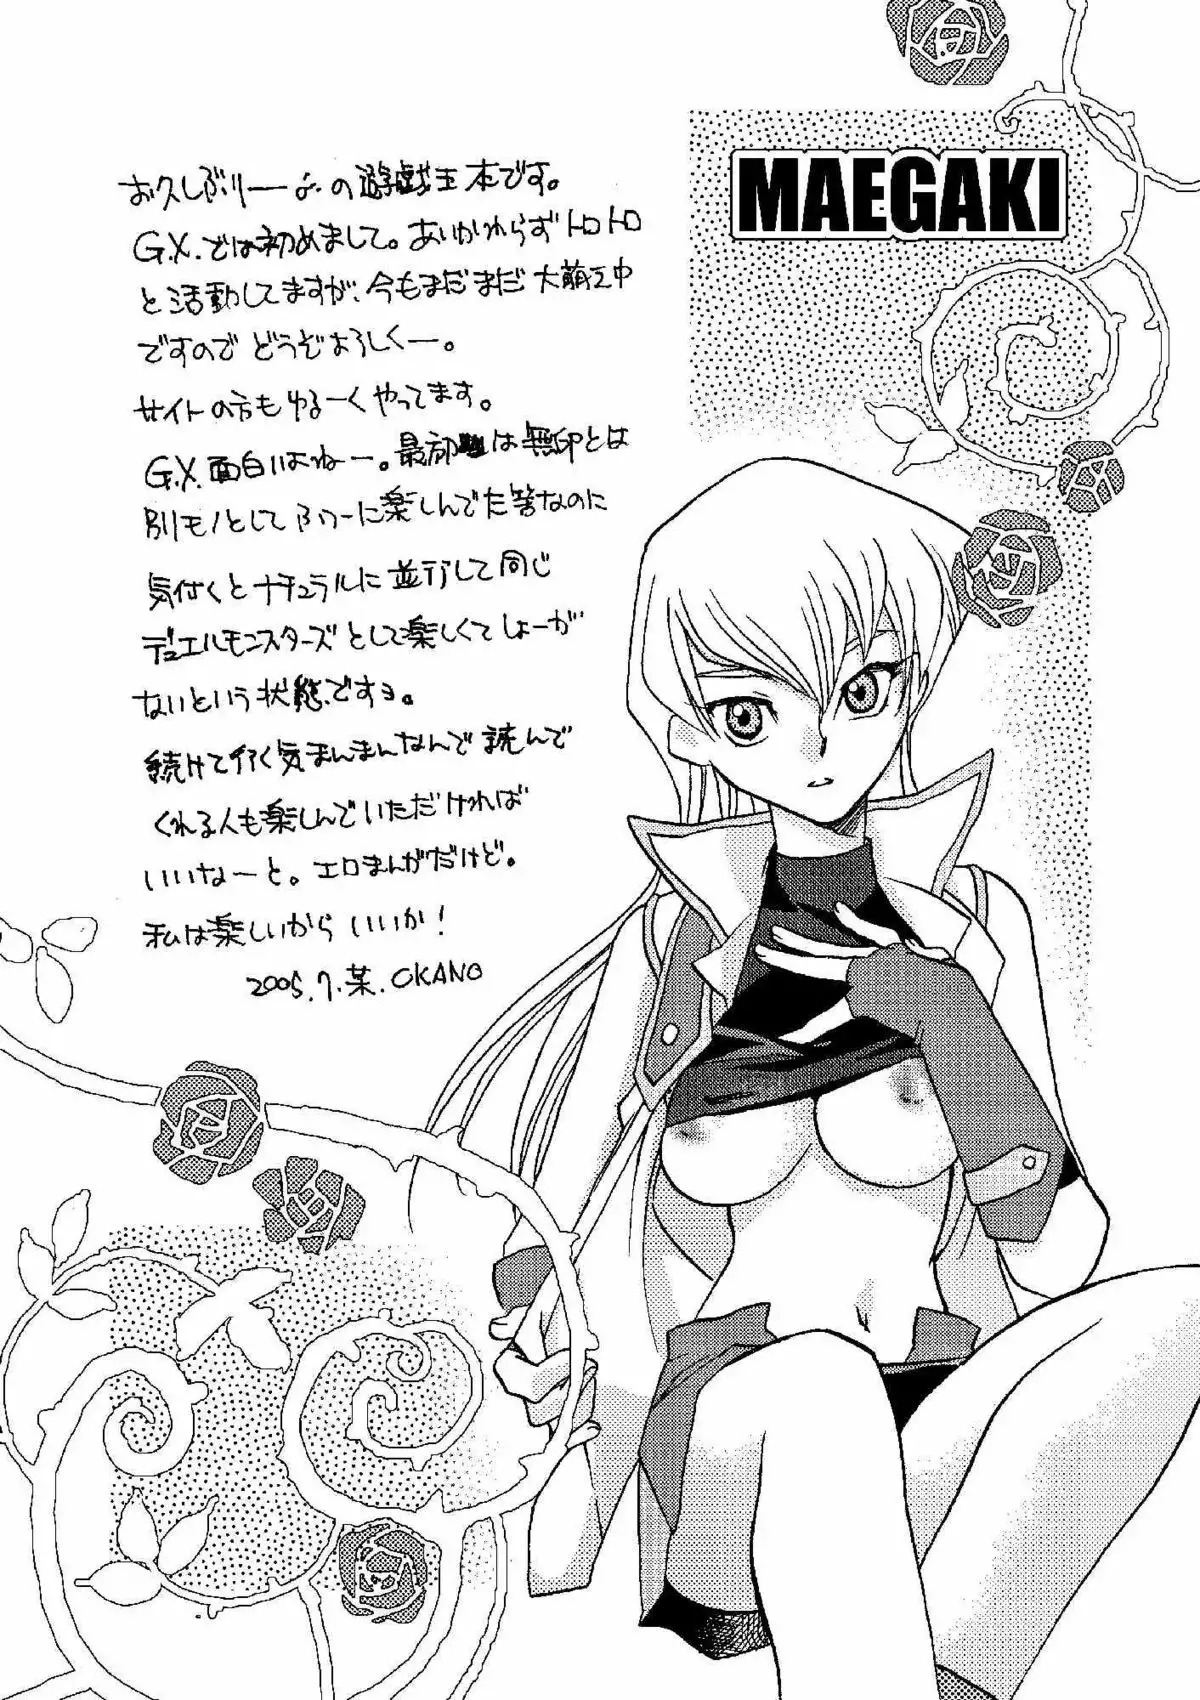 MAEGAKI
お久しぶりーの遊戯王本です。
G.X.では初めまして。あいかわらずトロトロ
と活動してますが、今もまだまだ大萌え中
ですのでどうぞよろしくー。
サイトの方もゆるーくやってます。
G.X.面白いよねー。最初は無印とは
別モノとしてふつーに楽しんでた筈なのに
気付くとナチュラルに並行して同じ
デュエルモンスターズとして楽しくてしょーが
ないという状態ですョ。
続けて行く気まんまんなんで読んで
くれる人も楽しんでいただければ
いいなーと。エロまんがだけど。
私は楽しいからいいか!
2005.7.某.OKANO